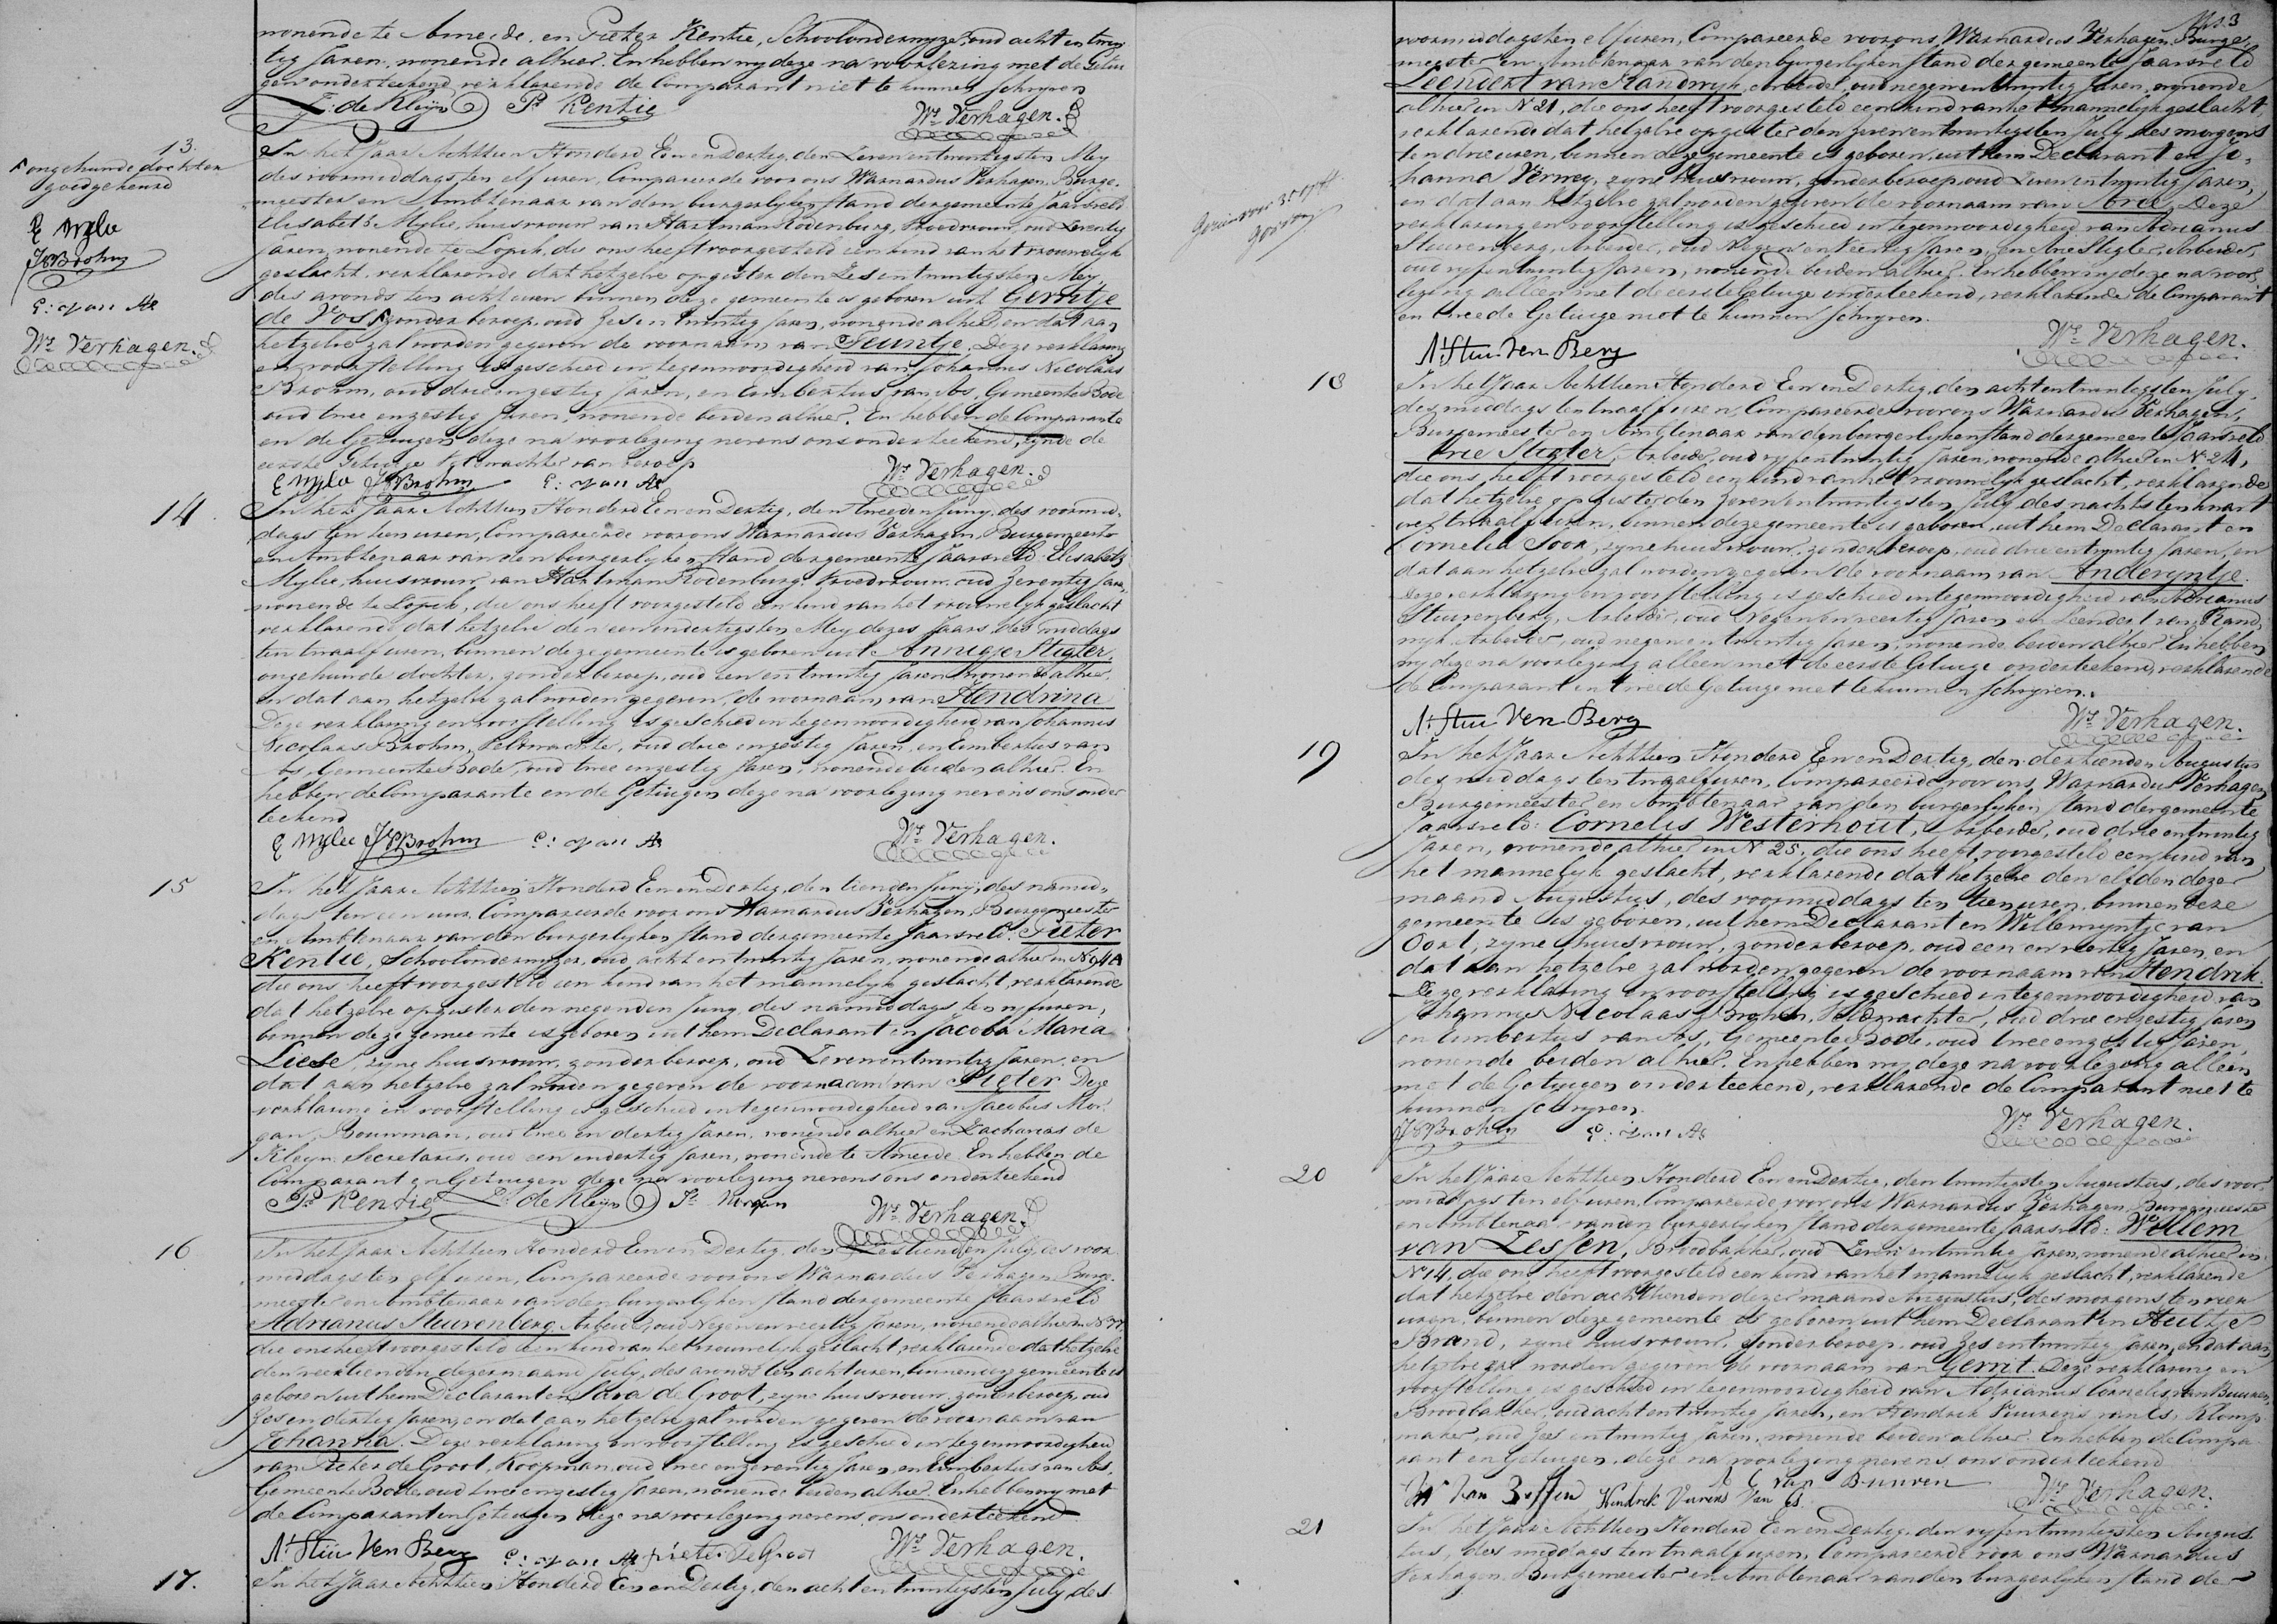 wonende te Ameide, en Pieter Kentie, Schoolonderwyzer, oud acht en twin
tig Jaren, wonende alhier. En hebben wy deze na voorlezing met de Getui
gen onderteekend, verklarende de Comparant niet te kunnen schryven
Z: de Kleijn Pr Kentie Wr Verhagen.
13.
ongehuwde dochter
goedgekeurd
E Mylie
JNBrohm
E: van As
Wr Verhagen.
In het Jaar Achttien Honderd Een en Dertig, den Zeven entwintigsten Mey
des voormiddags ten elf uren, Compareerde voor ons Warnardus Verhagen, Burge-
meester en Ambtenaar van den burgerlyken stand der gemeente Jaarsveld
Elisabeth Mylie, huisvrouw van Hartman Rodenburg, Vroedvrouw, oud Zeventig
Jaren, wonende te Lopik, die ons heeft voorgesteld een kind van het vrouwelyk
geslacht, verklarende dat hetzelve op gister den Zes entwintigsten Mey
des avonds ten acht uren binnen deze gemeente is geboren uit Gerritje
de Vos zonder beroep, oud Zes en twintig Jaren, wonende alhier, en dat aan
hetzelve zal worden gegeven de voornaam van Teuntje. Deze verklaring
en voorstelling is geschied in tegenwoordigheid van Johannes Nicolaas
Brohm, oud drie en zestig Jaren, en Eimbertus van As, Gemeente Bode
oud twee en zestig Jaren, wonende beiden alhier. En hebben de Comparante
en de Getuigen deze na voorlezing nevens ons onderteekend, zynde de
eerste Getuige Veldwachter van beroep
E Mylie JNBrohm E: van As Wr Verhagen.
14.
In het Jaar Achttien Honderd Een en Dertig, den tweeden Juny, des voormid-
dags ten tien uren, Compareerde voor ons Warnardus Verhagen, Burgemeester
en Ambtenaar van den burgerlyken stand der gemeente Jaarsveld Elisabeth
Mylie, huisvrouw van Hartman Rodenburg, Vroedvrouw, oud Zeventig Jare,
wonende te Lopik, die ons heeft voorgesteld een kind van het vrouwelyk geslacht
verklarende dat hetzelve den een endertigsten Mey dezes Jaars, des middags
ten twaalf uren, binnen deze gemeente is geboren uit Annigje Stigter
ongehuwde dochter, zonder beroep, oud een entwintig Jaren wonende alhier,
en dat aan hetzelve zal worden gegeven, de voornaam van Hendrina
Deze verklaring en voorstelling is geschied in tegenwoordigheid van Johannes
Nicolaas Brohm, Veldwachter, oud drie en zestig Jaren, en Eimbertus van
As, Gemeente Bode, oud twee en zestig Jaren, wonende beiden alhier. En
hebben de Comparante en de Getuigen deze na voorlezing nevens ons onder
teekend
E Mylie JNBrohm E: van As Wr Verhagen.
15
In het Jaar Achttien Honderd Een en Dertig, den tienden Juny, des namid-
dags ten een uur, Compareerde voor ons Warnardus Verhagen, Burgemeester
en Ambtenaar van den burgerlyken stand der gemeente Jaarsveld: Pieter
Kentie, Schoolonderwyzer, oud acht entwintig Jaren, wonende alhier in No 94A
die ons heeft voorgesteld een kind van het mannelyk geslacht, verklarende
dat hetzelve op gister den negenden Juny des namiddags ten vyf uren,
binnen deze gemeente is geboren uit hem Declarant en Jacoba Maria
Liese, zyne huisvrouw, zonder beroep, oud Zeven entwintig Jaren, en
dat aan hetzelve zal worden gegeven de voornaam van Pieter. Deze
verklaring en voorstelling is geschied in tegenwoordigheid van Jacobus Mor-
gan, Bouwman, oud twee en dertig Jaren, wonende alhier en Zacharias de
Kleyn, Secretaris, oud een endertig Jaren, wonende te Ameide. En hebben de
Comparant en Getuigen deze na voorlezing nevens ons onderteekend
Pr Kentie Z: de Kleijn Js Morgan Wr Verhagen.
16
In het Jaar Achttien Honderd Een en Dertig, den Zestienden July, des voor-
middags ten elf uren, Compareerde voor ons Warnardus Verhagen, Burge-
meester en Ambtenaar van den burgerlyken stand der gemeente Jaarsveld
Adrianus Stuivenberg, Arbeider, oud Negen en veertig Jaren, wonende alhier in No 77
die ons heeft voorgesteld een kind van het vrouwelyk geslacht verklarende dat hetzelve
den veertienden dezer maand July, des avonds ten acht uren, binnen deze gemeente is
geboren uit hem Declarant en Sara de Groot, zyne huisvrouw zonder beroep, oud
Zes en dertig Jaren, en dat aan hetzelve zal worden gegeven de voornaam van
Johanna. Deze verklaring en voorstelling is geschied in tegenwoordigheid
van Pieter de Groot, Koopman, oud twee en zeventig Jaren, en Eimbertus van As,
Gemeente Bode, oud twee en zestig Jaren, wonende beiden alhier. En hebben wy met
de Comparant en Getuigen deze na voorlezing nevens ons onderteekend
A: Stui Ven Berg E: van As pieter De Groot Wr Verhagen.
17.
In het Jaar Achttien Honderd Een en Dertig, den acht en twintigsten July, des
voormiddags ten elf uren, Compareerde voor ons Warnardus Verhagen, Burge-
meester en Ambtenaar van den burgerlyken stand der gemeente Jaarsveld
Leendert van Randwyk, Arbeider, oud negen entwintig Jaren, wonende
alhier in No 21, die ons heeft voorgesteld een kind van het mannelyk geslacht,
verklarende dat hetzelve op gister den zeven entwintigsten July des morgens
ten drie uren, binnen deze gemeente is geboren, uit hem Declarant en Jo-
hanna Verwey, zyne huisvrouw, zonder beroep, oud Zeven entwintig Jaren,
en dat aan hetzelve zal worden gegeven de voornaam van Arie. Deze
verklaring en voorstelling is geschied in tegenwoordigheid van Adrianus
Stuivenberg, Arbeider, oud Negen en veertig Jaren, en Arie Stigter, Arbeider,
oud vyf entwintig Jaren, wonende beiden alhier. En hebben wy deze na voor-
lezing alleen met de eerste Getuige onderteekend, verklarende de Comparant
en tweede Getuige niet te kunnen schryven.
A: Stui Ven Berg Wr Verhagen.
18
In het Jaar Achttien Honderd Een en Dertig, den acht entwintigsten July,
des middags ten twaalf uren, Compareerde voor ons Warnardus Verhagen,
Burgemeester en Ambtenaar van den burgerlyken stand der gemeente Jaarsveld
Arie Stigter, Arbeider, oud vyf entwintig Jaren, wonende alhier in No 24,
die ons heeft voorgesteld een kind van het vrouwelyk geslacht, verklarende
dat hetzelve op gister den zeven entwintigsten July des nachts ten kwart
over twaalf uren, binnen deze gemeente is geboren, uit hem Declarant en
Cornelia Soor, zyne huisvrouw, zonder beroep, oud drie entwintig Jaren, en
dat aan hetzelve zal worden gegeven de voornaam van Anderyntje.
Deze verklaring en voorstelling is geschied in tegenwoordigheid van Adrianus
Stuivenberg, Arbeider, oud Negen en veertig Jaren en Leendert van Rand-
wyk, Arbeider, oud negen entwintig Jaren, wonende beiden alhier. En hebben
wy deze na voorlezing alleen met de eerste Getuige onderteekend, verklarende
de Comparant en tweede Getuige niet te kunnen schryven.
A: Stui Ven Berg Wr Verhagen.
19
In het Jaar Achttien Honderd Een en Dertig, den dertienden Augustus
des middags ten twaalf uren, Compareerde voor ons Warnardus Verhagen
Burgemeester en Ambtenaar van den burgerlyken stand der gemeente
Jaarsveld: Cornelis Westerhout, Arbeider, oud drie entwintig
Jaren, wonende alhier in No 25, die ons heeft voorgesteld een kind van
het mannelyk geslacht, verklarende dat hetzelve den elfden dezer
maand Augustus, des voormiddags ten tien uren, binnen deze
gemeente is geboren, uit hem Declarant en Willemyntje van
Oort, zyne huisvrouw, zonder beroep, oud een en veertig Jaren, en
dat aan hetzelve zal worden gegeven de voornaam van Hendrik.
Deze verklaring en voorstelling is geschied in tegenwoordigheid van
Johannes Nicolaas Brohm, Veldwachter, oud drie en zestig Jaren
en Eimbertus van As, Gemeente Bode, oud twee en zestig Jaren,
wonende beiden alhier. En hebben wy deze na voorlezing alleen
met de Getuigen onderteekend, verklarende de Comparant niet te
kunnen schryven.
JNBrohm E: van As Wr Verhagen.
20
In het Jaar Achttien Honderd Een en Dertig, den twintigsten Augustus, des voor-
middags ten elf uren, Compareerde voor ons Warnardus Verhagen, Burgemeester
en Ambtenaar van den burgerlyken stand der gemeente Jaarsveld: Willem
van Zessen, Broodbakker, oud Zeven entwintig Jaren, wonende alhier in
No 14, die ons heeft voorgesteld een kind van het mannelyk geslacht, verklarende
dat hetzelve den achttienden dezer maand Augustus, des morgens ten vier
uren, binnen deze gemeente is geboren uit hem Declarant en Heiltje
Brand, zyne huisvrouw, zonder beroep, oud Zes entwintig Jaren, en dat aan
hetzelve zal worden gegeven de voornaam van Gerrit. Deze verklaring en
voorstelling is geschied in tegenwoordigheid van Adrianus Cornelis van Buuren,
Broodbakker, oud acht entwintig Jaren, en Hendrik Vuurens van Es, Klomp-
maker, oud Zes entwintig Jaren, wonende beiden alhier. En hebben de Compa-
rant en Getuigen, deze na voorlezing nevens ons onderteekend
W van Zessen Hendrik Vurens Van Es A C van Buuren Wr Verhagen.
21
In het Jaar Achttien Honderd Een en Dertig, den vyf entwintigsten Augus-
tus, des middags ten twaalf uren, Compareerde voor ons Warnardus
Verhagen, Burgemeester en Ambtenaar van den burgerlyken stand der